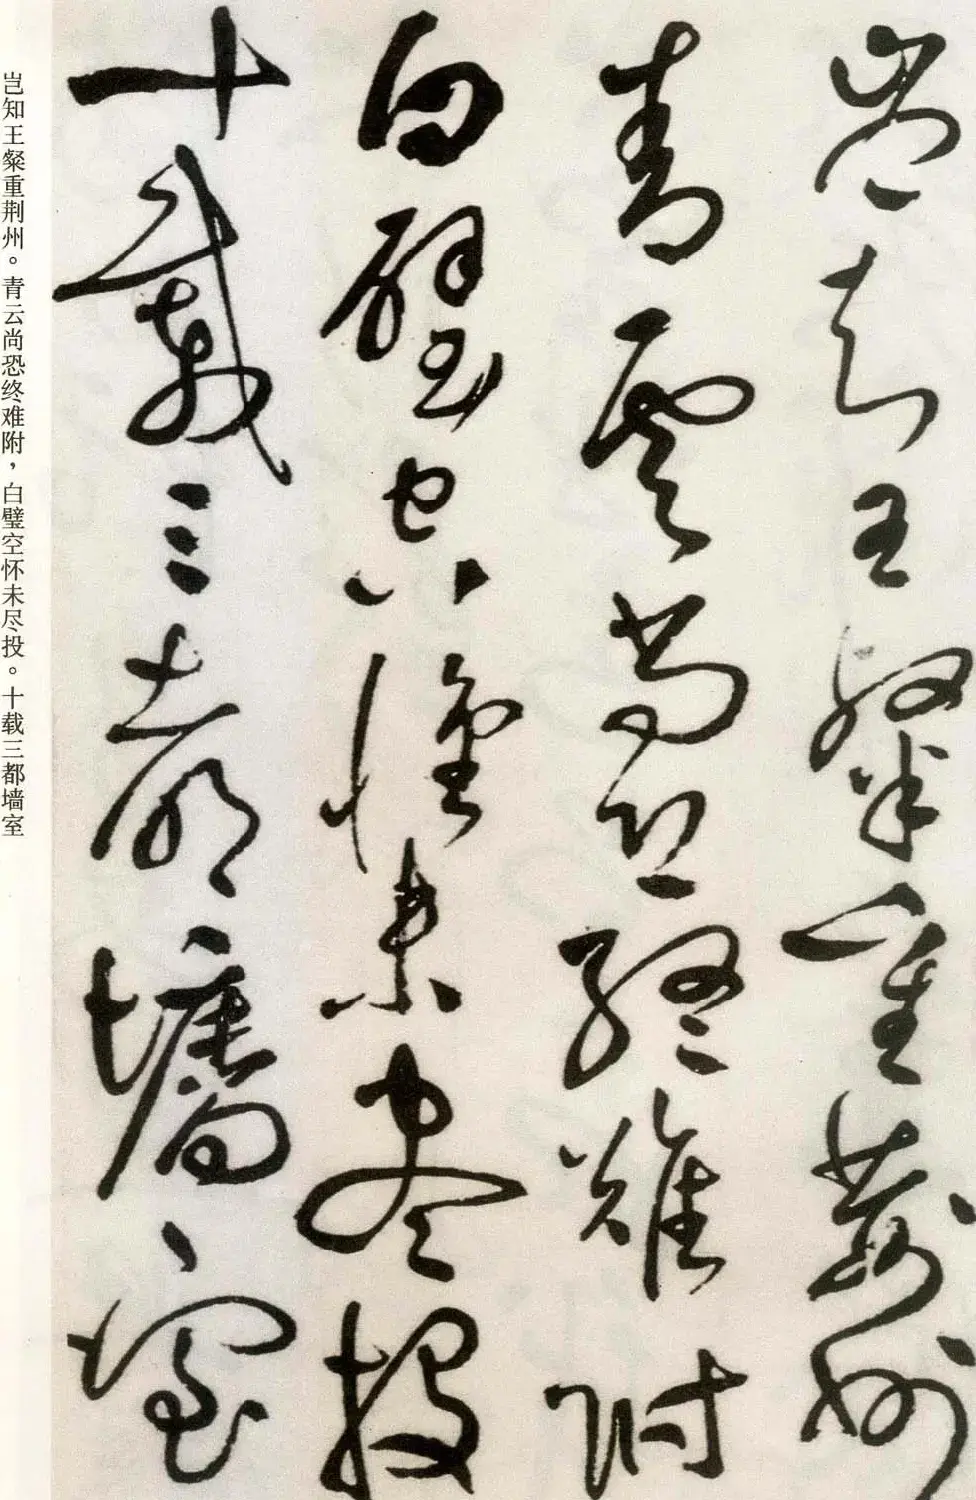 岂知王粲重荆州
青雲尚恐終難附
白璧空懷未盡投
十載三都墻室
岂知王粲重荆州。青云尚恐终难附，白璧空怀未尽投。十载三都墙室